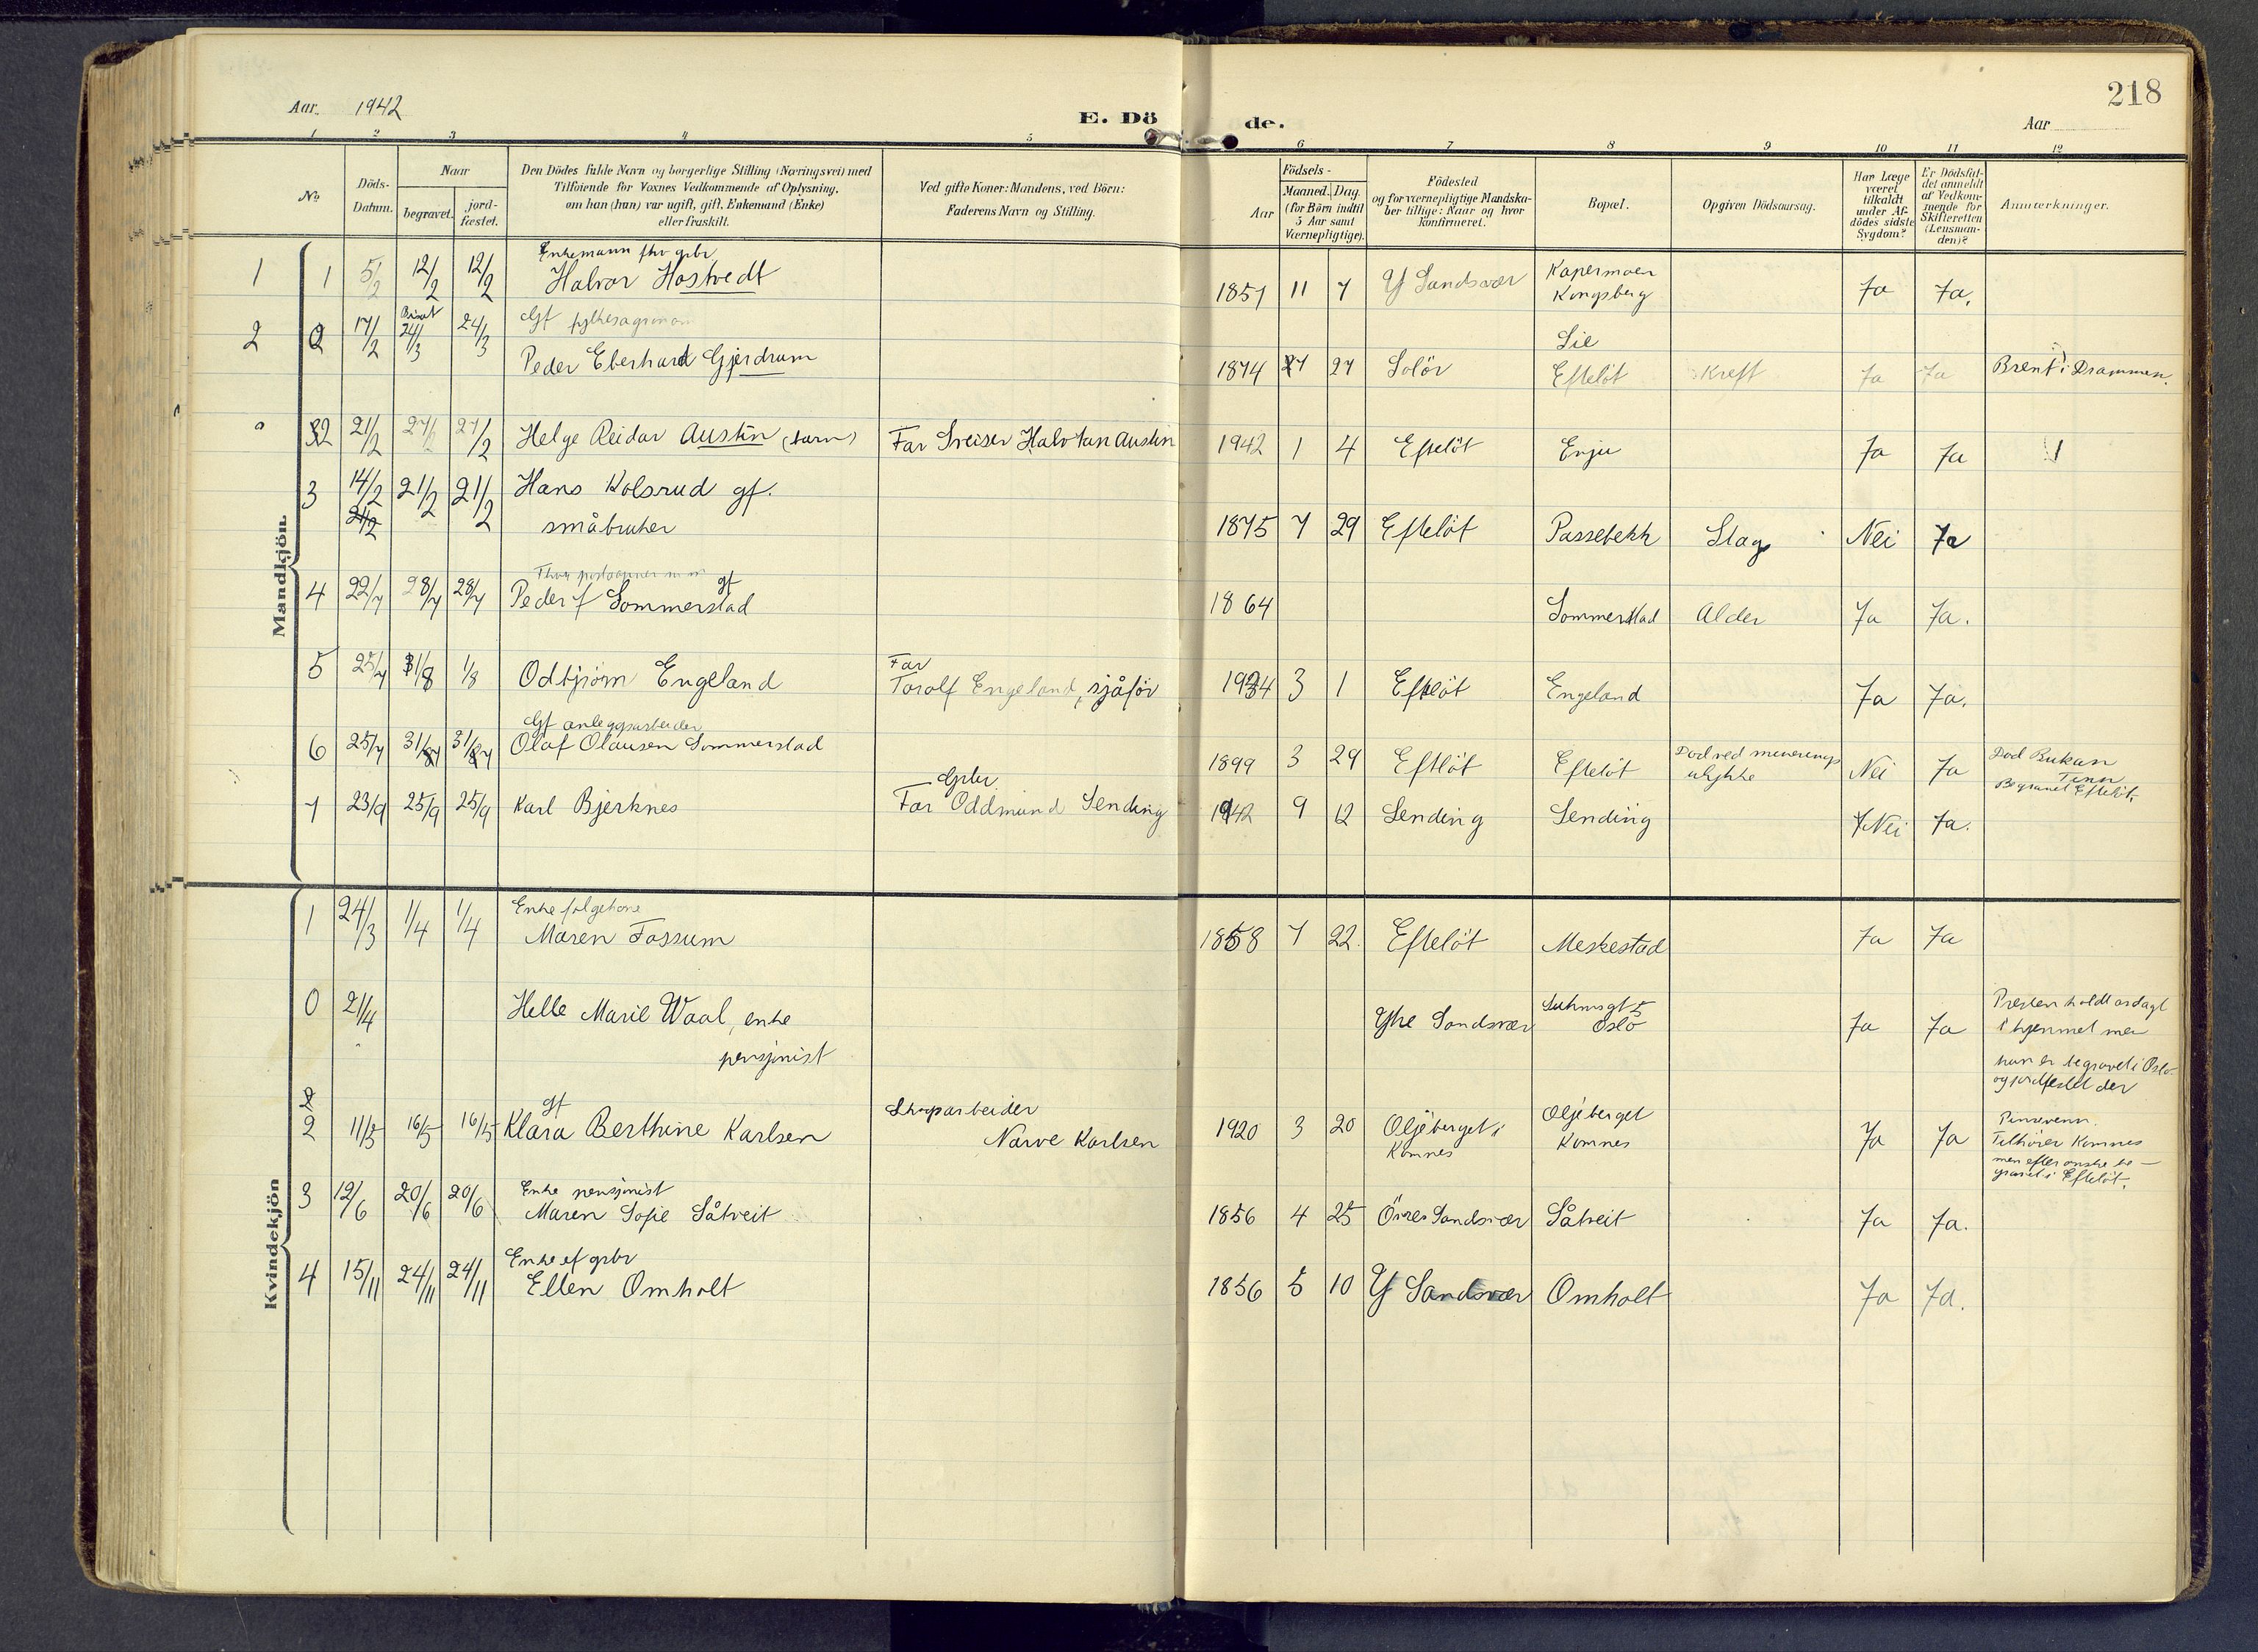 218
Aar. 1942
E. Dö
de.
Aar
1 2 3 4 5 6 7 8 9 10 11 12
No
Döds-Datum.
Naar
begravet.
jord-fæstet.
Den Dödes fulde Navn og borgerlige Stilling (Næringsvei) med
Tilföiende for Voxnes Vedkommende af Oplysning,
om han (hun) var ugift, gift, Enkemand (Enke)
eller fraskilt.
Ved gifte Koner: Mandens, ved Börn:
Faderens Navn og Stilling.
Födsels-
Aar
Maaned. Dag.
(for Börn indtil
5 Aar samt
Værnepligtige).
Födested
og for værnepligtige Mandska-
ber tillige: Naar og hvor
konfirmeret.
Bopæl.
Opgiven Dödsaarsag.
Har Læge
været
tilkaldt
under Af-
dödes sidste
Sygdom?
Er Dödsfal-
det anmeldt
af Vedkom-
mende for
Skifteretten
(Lensman-
den)?
Anmærkninger.
Mandkjön.
Enkemann fhv grbr
1 1 5/2 12/2 12/2 Halvor Hostvedt 1851 11 7 Y Sandsvær Kapermoen Kongsberg Ja Ja.
Gf fylkesagronom
2 2 17/2 24/3 24/3 Peder Eberhard Gjerdrum 1874 7 27 Solör Lie Efteløt Kreft Ja Ja Brent i Drammen.
2 21/2 27/2 27/2 Helge Reidar Austin (barn) Far Sveiser Halvtan Austin 1942 1 4 Efteløt Enju Ja Ja 1
3 14/2 21/2 21/2 Hans Kolsrud gf.
21/2 småbruker 1875 7 29 Efteløt Passebekk Slag Nei Ja
4 22/7 28/7 28/7 Peder f Sommerstad gf 1864 Sommerstad Alder Ja Ja.
5 25/7 1/8 1/8 Odbjørn Engeland Far Torolf Engeland, sjåfør 1934 3 1 Efteløt Engeland Ja Ja.
Gf anleggsarbeider
6 25/7 31/7 31/7 Olaf Olausen Sommerstad 1899 3 29 Efteløt Efteløt Död ved minerings ulykke Nei Ja Död Bukan Tinn Begravet Efteløt.
Grbr.
7 23/9 25/9 25/9 Karl Bjerknes Far Oddmund Sending 1942 9 12 Sending Sending Nei Ja.
Kvindekjön
Enke folgekone
1 24/3 1/4 1/4 Maren Fossum 1858 7 22. Efteløt Meskestad Ja Ja
0 21/4 Helle Marie Waal, enke
pensjonist Ytre Sandsvær Suhmsgt 5 Oslo Ja Ja Presten holdt andagt
i hjemmet men
hun er begravet i Oslo
og jordfestet der
2
2 11/5 16/5 16/5 gf Klara Berthine Karlsen Skogsarbeider Narve Karlsen 1920 3 20 Oljeberget i Komnes Oljeberget Komnes Ja Ja Pinsevenn.
Tilhører Komnes
men efter ønske be-
gravet i Efteløt.
Enke pensjonist
3 12/6 20/6 20/6 Maren Sofie Såtveit 1856 4 25 Övre Sandsvær Såtveit Ja Ja.
Enke ef grbr
4 15/11 24/11 24/11 Ellen Omholt 1856 5 10 Y Sandsvær Omholt Ja Ja.